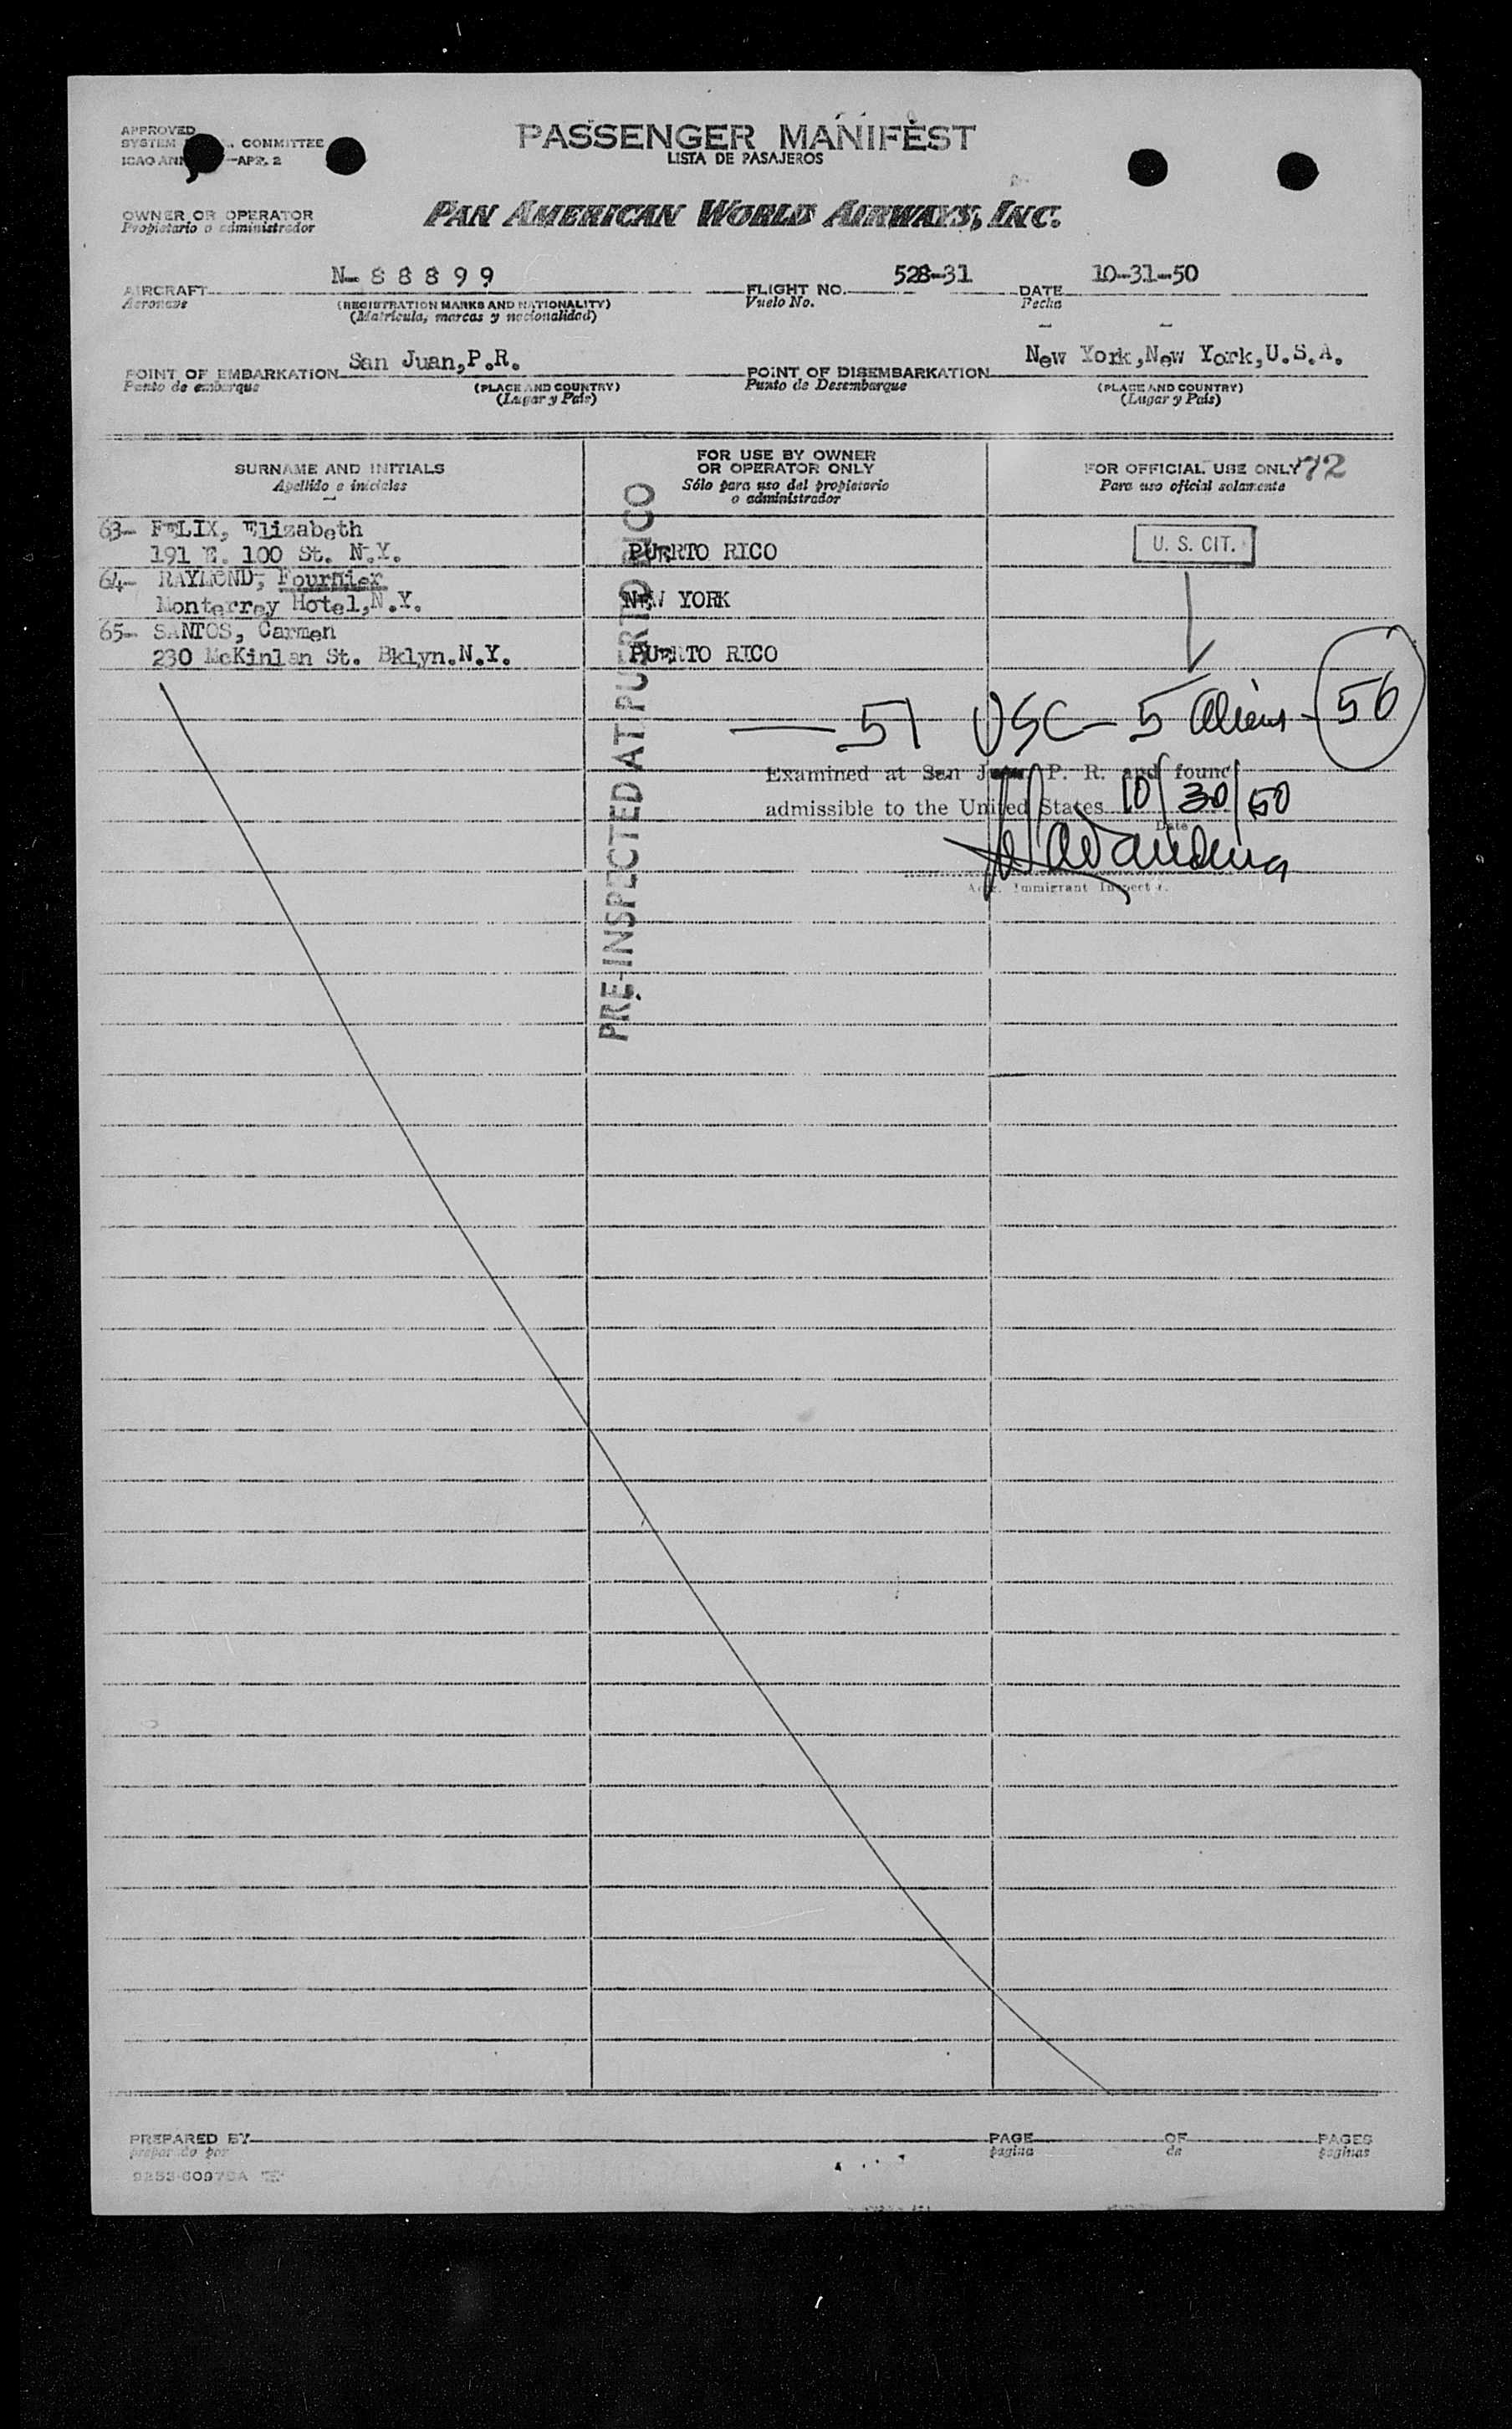 APPROVED
SYSTEM COMMITTEE
ICAO
PASSENGER MANIFEST
LISTA DE PASAJEROS
OWNER OR OPERATOR
Propietario o administrador
PAN AMERICAN WORLD AIRWAYS, INC.
AIRCRAFT N-88899 FLIGHT NO. 528-31 DATE 10-31-50
Aeronave (REGISTRATION MARKS AND NATIONALITY) Vuelo No. Fecha
(Matricula, marcas y nacionalidad)
POINT OF EMBARKATION San Juan,P.R. POINT OF DISEMBARKATION New York,New York,U.S.A.
Punto de embarque (PLACE AND COUNTRY) Punto de Desembarque (PLACE AND COUNTRY)
(Lugar y País) (Lugar y País)
SURNAME AND INITIALS FOR USE BY OWNER OR OPERATOR ONLY FOR OFFICIAL USE ONLY 72
Apellido e iniciales Sólo para uso del propietario o administrador Para uso oficial solamente
63- FELIX, Elizabeth
191 E. 100 St. N.Y. PUERTO RICO U. S. CIT.
64- RAYMOND, Fournier
Monterrey Hotel,N.Y. NEW YORK
65- SANTOS, Carmen
230 McKinlan St. Bklyn.N.Y. PUERTO RICO
PRE-INSPECTED AT PUERTO RICO
51 USC - 5 Aliens - 56
Examined at San Juan, P. R. and found
admissible to the United States 10/30/50
Date
Immigrant Inspector.
PREPARED BY PAGE OF PAGES
preparado por página de páginas